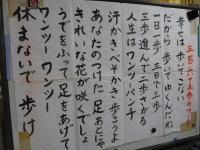 三百六十五歩のマーチ
幸せは歩いてこない
だから歩いてゆくんだね
一日一歩 三日で三歩
三歩進んで二歩さがる
人生はワン・ツー・パンチ
汗かきべそかき歩こうよ
あなたのつけた足あとにゃ
きれいな花が咲くでしょう
腕をふって足をあげて
ワンツー ワンツー
休まないで歩け